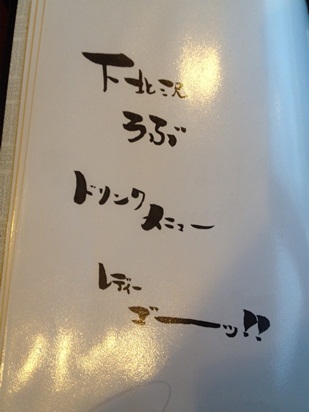 下北沢
ろぶ
ドリンク
メニュー
レディー
ゴーーッ!?